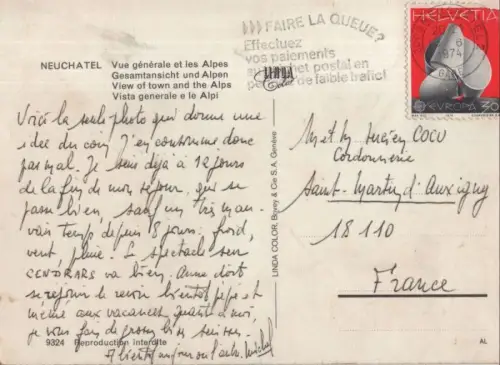 FAIRE LA QUEUE?
Effectuez
vos paiements
au guichet postal en
période de faible trafic!
HELVETIA
1974
EUROPA 30
NEUCHATEL Vue générale et les Alpes
Gesamtansicht und Alpen
View of town and the Alps
Vista generale e le Alpi
Voici la seule photo qui donne une
idée du coin, j'en consomme donc
pas mal. Je suis déjà à 12 jours
de la fin de mon séjour, qui se
passe bien, sauf un très mau-
vais temps depuis 8 jours. froid,
vent, pluie. Le spectacle sur
CENDRARS va bien. Anne doit
se réjouir de revoir bientôt pépé et
mémé aux vacances. Quant à moi,
je vous fais de grosses bises suisses.
A bientôt Michel
M et Mme Lucien COCU
Cordonnerie
Saint-Martin d'Auxigny
18110
France
LINDA COLOR, Borey & Cie S.A. Genève
9324 Reproduction interdite
AL